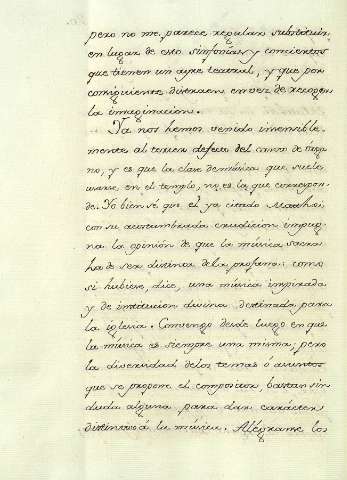 pero no me parece regular substituir
en lugar de esto sinfonías y conciertos
que tienen un ayre teatral, y que por
consiguiente distraen en vez de recoger
la imaginacion.
Ya nos hemos venido insensible-
mente al tercer defecto del canto de órga
no, y es que la clase de música que suele
usarse en el templo, no es la que correspon-
de. Yo bien sé que el ya citado
con su acostumbrada erudicion impug-
na la opinión de que la música sacra
ha de ser distinta de la profana: como
si hubiese, dice, una música inspirada
y de institucion divina destinada para
la iglesia. Convengo desde luego en que
la música es siempre una misma; pero
la diversidad de los temas ó asuntos
que se propone el compositor, bastan sin
duda alguna para dar carácter
distintivo á la música. Alégrame los